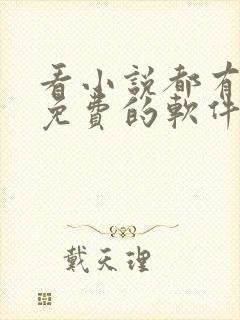 看小説都有
免費的軟件
戴天理